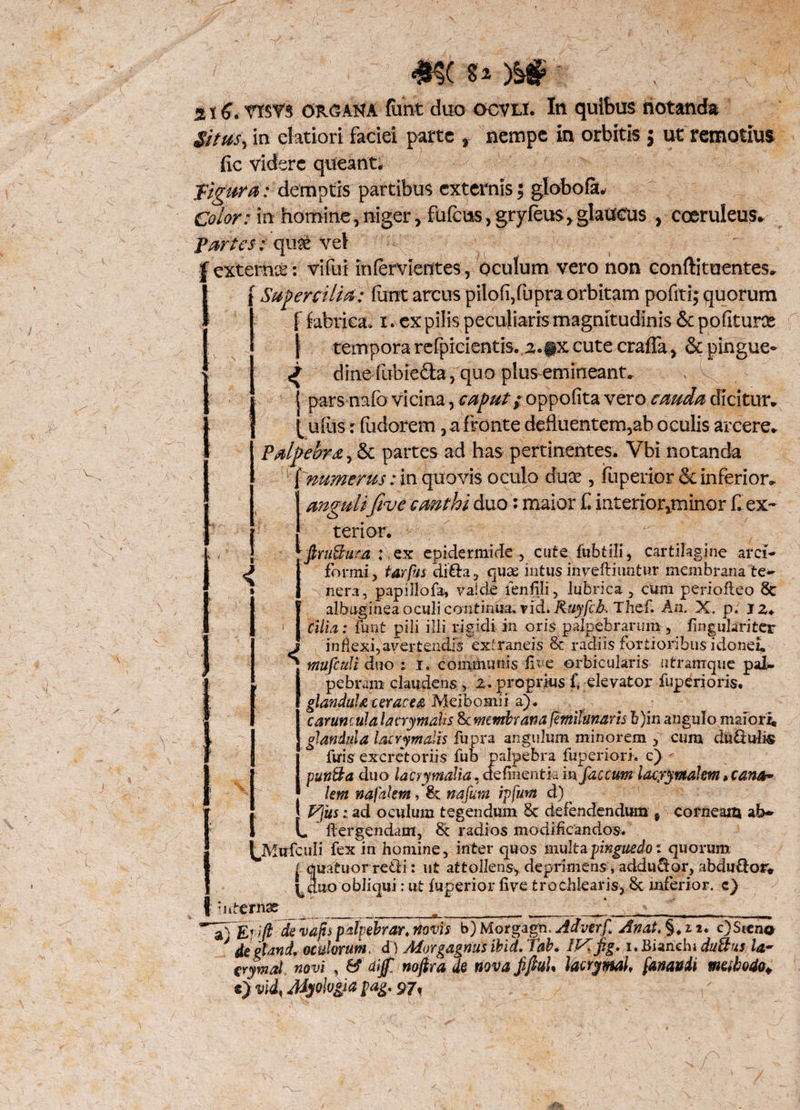 82
216. VISVS ORGANA ſunt duo OCVLI. In quibus notanda
Situs, in elatiori faciei parte, nempe in orbitis; ut remotius
ſic videre queant.
Figura: demptis partibus externis; globoſa.
Color: in homine, niger, fuſcus, gryſeus, glaucus, cœruleus.
Partes: quæ vel
externæ: viſui inſervientes, oculum vero non conſtituentes.
Supercilia: ſunt arcus piloſi, ſupra orbitam poſiti; quorum
fabrica. 1. ex pilis peculiaris magnitudinis & poſituræ
tempora reſpicientis. 2. ex cute craſſa, & pingue-
dine ſubiecta, quo plus emineant.
pars naſo vicina, caput; oppoſita vero cauda dicitur.
uſus: ſudorem, a fronte defluentem, ab oculis arcere.
Palpebræ, & partes ad has pertinentes. Vbi notanda
numerus: in quovis oculo duæ, ſuperior & inferior.
anguli ſive canthi duo: maior ſ. interior, minor ſ. ex-
terior.
ſtructura: ex epidermide, cute ſubtili, cartilagine arci-
formi, tarſus dicta, quæ intus inveſtiuntur membrana te-
nera, papilloſa, valde ſenſili, lubrica, cum perioſteo &
albuginea oculi continua. vid. Ruyſch. Theſ. An. X. p. 12.
Cilia: ſunt pili illi rigidi in oris palpebrarum, ſingulariter
inflexi, avertendis extraneis & radiis fortioribus idonei.
muſculi duo: 1. communis ſive orbicularis utramque pal-
pebram claudens, 2. proprius ſ. elevator ſuperioris.
glandulæ ceraceæ Meibomii a).
caruncula lacrymalis & membrana ſemilunaris b) in angulo maiori.
glandula lacrymalis ſupra angulum minorem, cum ductulis
ſuis excretoriis ſub palpebra ſuperiori. c)
puncta duo lacrymalia, deſinentia in ſaccum lacrymalem, cana-
lem naſalem, & naſum ipſum d)
Vſus: ad oculum tegendum & defendendum, corneam ab-
ſtergendam, & radios modificandos.
Muſculi ſex in homine, inter quos multa pinguedo: quorum
quatuor recti: ut attollens, deprimens, adductor, abductor.
duo obliqui: ut ſuperior ſive trochlearis, & inferior. e)
internæ
a) Ej. iſt. de vaſis palpebrar. novis b) Morgagn. Adverſ. Anat. §. 22. c) Steno
de gland. oculorum. d) Morgagnus ibid. Tab. IV. fig. 1. Bianchi ductus la-
crymal. novi, & diſſ. noſtra de nova fiſtul. lacrymal. ſanandi methodo.
e) vid. Myologia pag. 97.